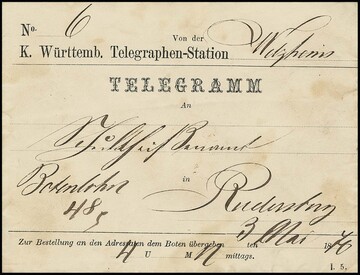 No. 6 Von der
K. Württemb. Telegraphen-Station Welzheim
TELEGRAMM
An
Schultheißenamt
Botenlohn in
48 Rudersberg
3 Mai 1876
Zur Bestellung an den Adressaten dem Boten übergeben ten 18
4 U M N mittags.
I. 5.